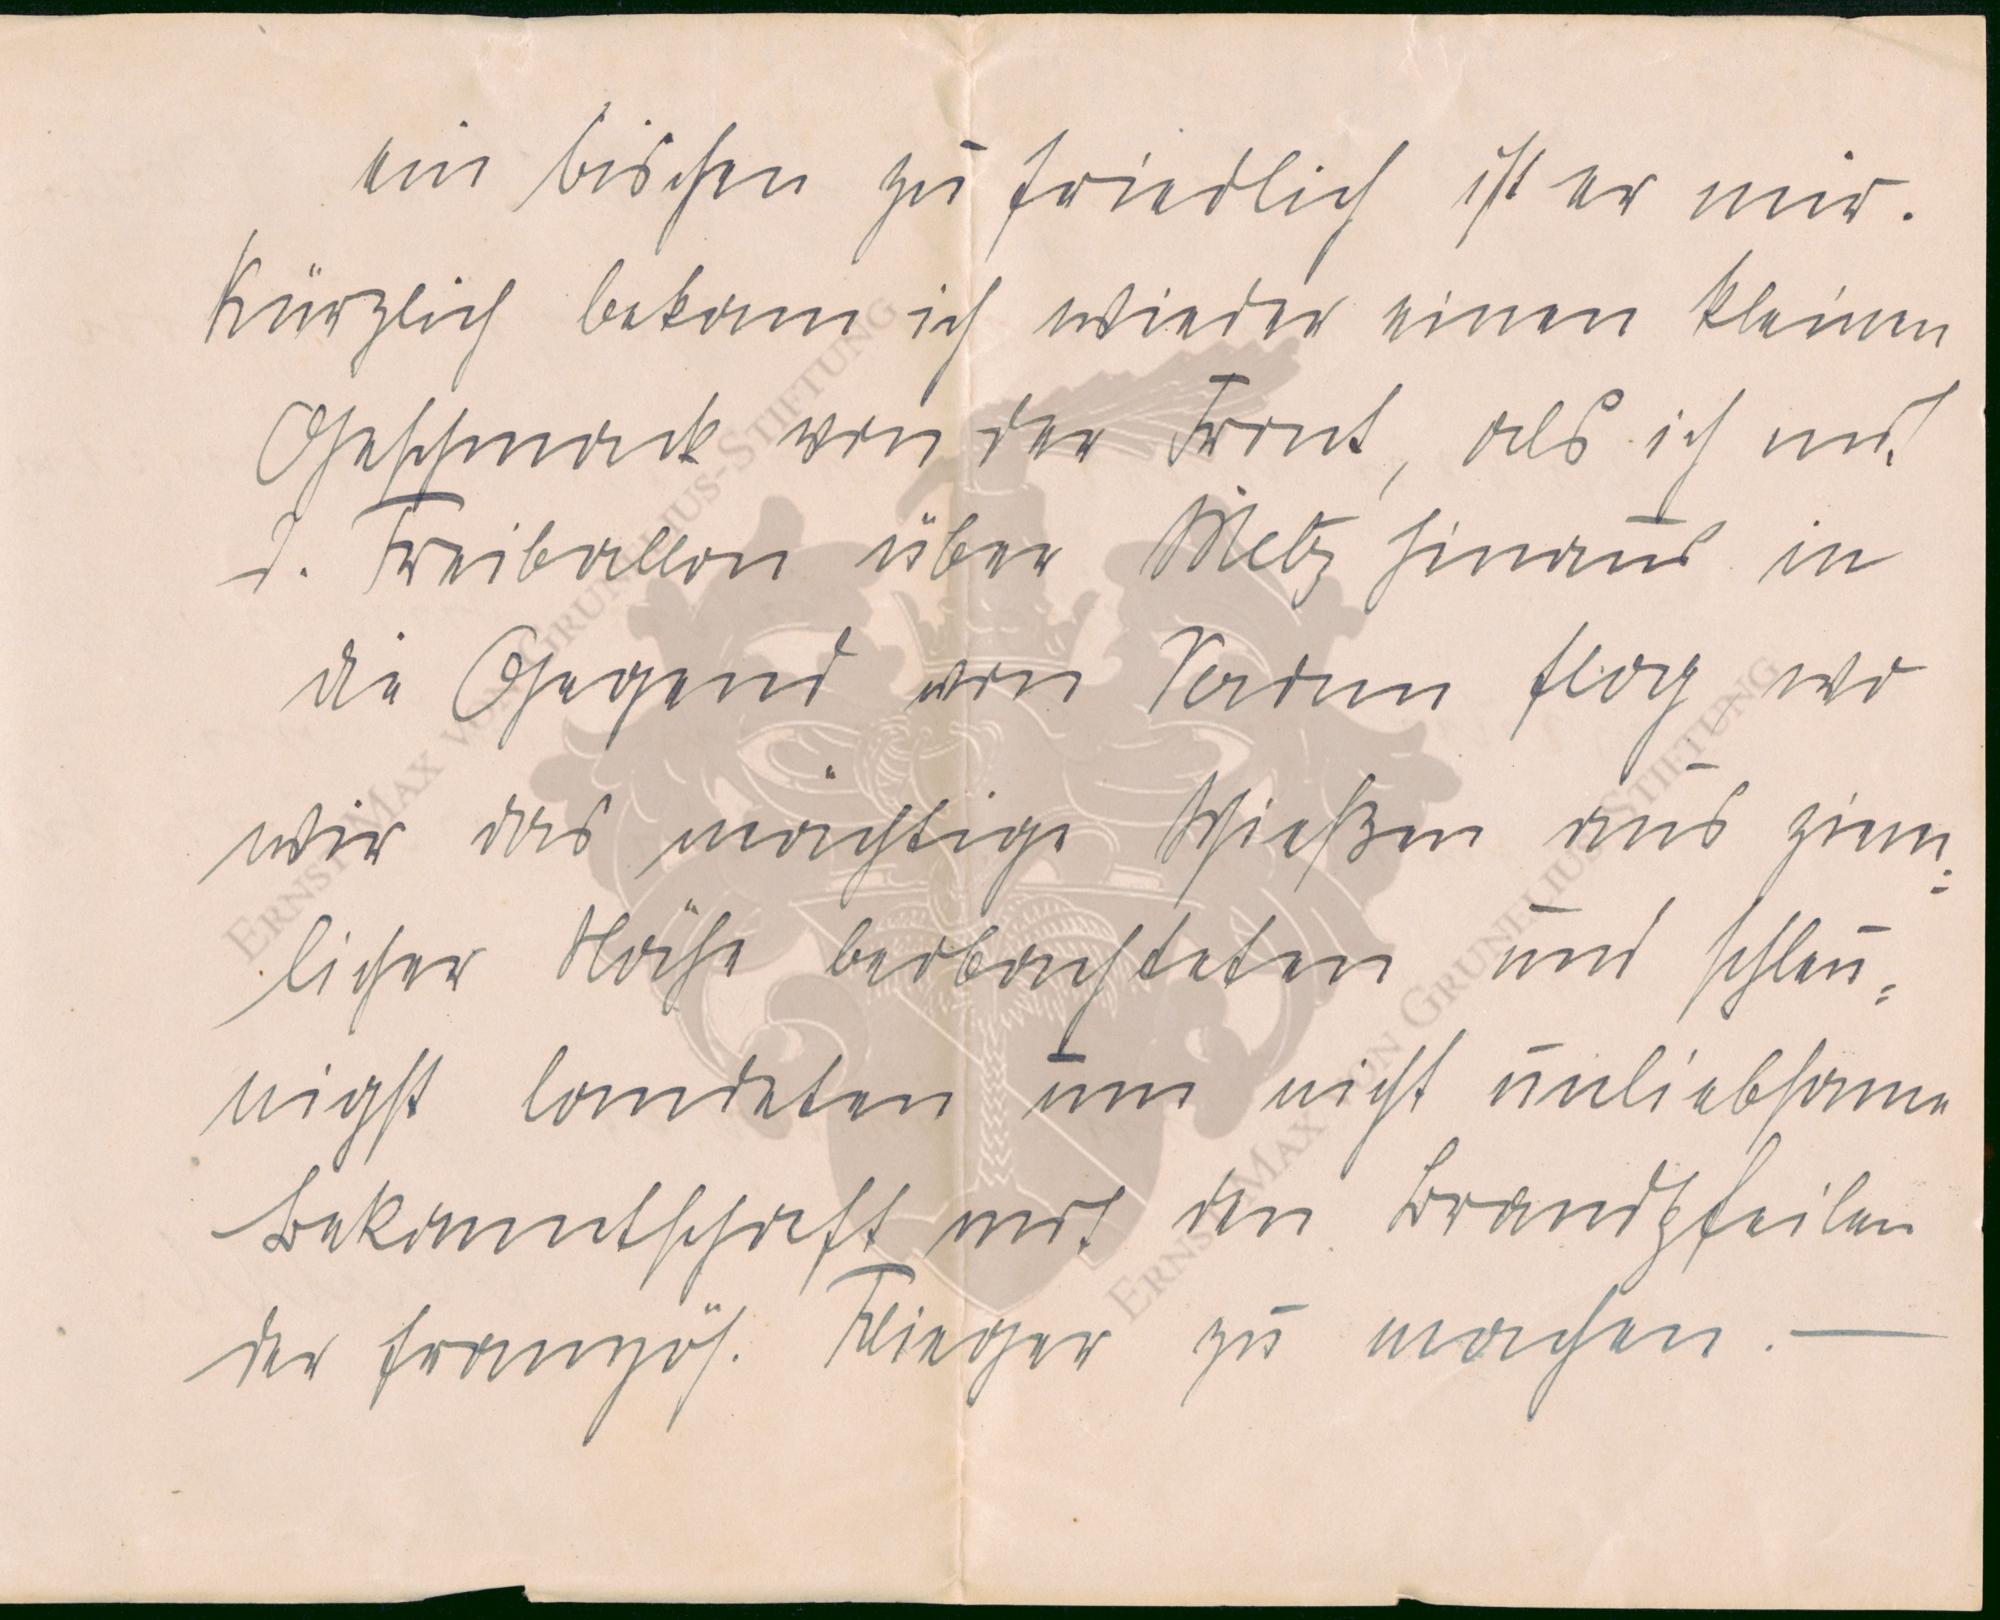 ein bischen zu friedlich ist er mir.
Kürzlich bekam ich wieder einen kleinen
Geschmack von der Front, als ich mit
d. Freiballon über Metz hinaus in
die Gegend von Verdun flog, wo
wir das mächtige Schießen aus ziem=
licher Nähe beobachteten und schleu=
nigst landeten um nicht unliebsame
Bekanntschaft mit den Brandpfeilen
der französ. Flieger zu machen. —
ERNST MAX VON GRUNELIUS-STIFTUNG
ERNST MAX VON GRUNELIUS-STIFTUNG